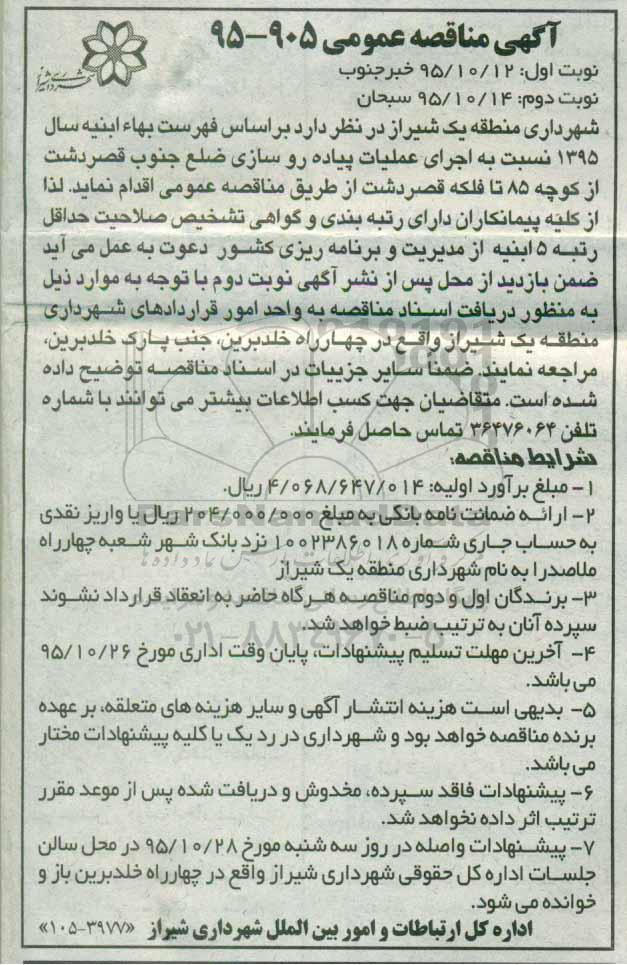 آگهی مناقصه عمومی ۹۰۵-۹۵
شهرداری شیراز
نوبت اول: ۹۵/۱۰/۱۲ خبرجنوب
نوبت دوم: ۹۵/۱۰/۱۴ سبحان
شهرداری منطقه یک شیراز در نظر دارد بر اساس فهرست بهاء ابنیه سال
۱۳۹۵ نسبت به اجرای عملیات پیاده رو سازی ضلع جنوب قصردشت
از کوچه ۸۵ تا فلکه قصردشت از طریق مناقصه عمومی اقدام نماید. لذا
از کلیه پیمانکاران دارای رتبه بندی و گواهی تشخیص صلاحیت حداقل
رتبه ۵ ابنیه از مدیریت و برنامه ریزی کشور دعوت به عمل می آید
ضمن بازدید از محل پس از نشر آگهی نوبت دوم با توجه به موارد ذیل
به منظور دریافت اسناد مناقصه به واحد امور قراردادهای شهرداری
منطقه یک شیراز واقع در چهارراه خلدبرین، جنب پارک خلدبرین،
مراجعه نمایند. ضمناً سایر جزییات در اسناد مناقصه توضیح داده
شده است. متقاضیان جهت کسب اطلاعات بیشتر می توانند با شماره
تلفن ۳۶۴۷۶۰۶۴ تماس حاصل فرمایند.
شرایط مناقصه:
۱- مبلغ برآورد اولیه: ۴/۰۶۸/۶۴۷/۰۱۴ ریال.
۲- ارائه ضمانت نامه بانکی به مبلغ ۲۰۴/۰۰۰/۰۰۰ ریال یا واریز نقدی
به حساب جاری شماره ۱۰۰۲۳۸۶۰۱۸ نزد بانک شهر شعبه چهارراه
ملاصدرا به نام شهرداری منطقه یک شیراز
۳- برندگان اول و دوم مناقصه هرگاه حاضر به انعقاد قرارداد نشوند
سپرده آنان به ترتیب ضبط خواهد شد.
۴- آخرین مهلت تسلیم پیشنهادات، پایان وقت اداری مورخ ۹۵/۱۰/۲۶
می باشد.
۵- بدیهی است هزینه انتشار آگهی و سایر هزینه های متعلقه، بر عهده
برنده مناقصه خواهد بود و شهرداری در رد یک یا کلیه پیشنهادات مختار
می باشد.
۶- پیشنهادات فاقد سپرده، مخدوش و دریافت شده پس از موعد مقرر
ترتیب اثر داده نخواهد شد.
۷- پیشنهادات واصله در روز سه شنبه مورخ ۹۵/۱۰/۲۸ در محل سالن
جلسات اداره کل حقوقی شهرداری شیراز واقع در چهارراه خلدبرین باز و
خوانده می شود.
اداره کل ارتباطات و امور بین الملل شهرداری شیراز «۳۹۷۷-۱۰۵»
ParsNamadData